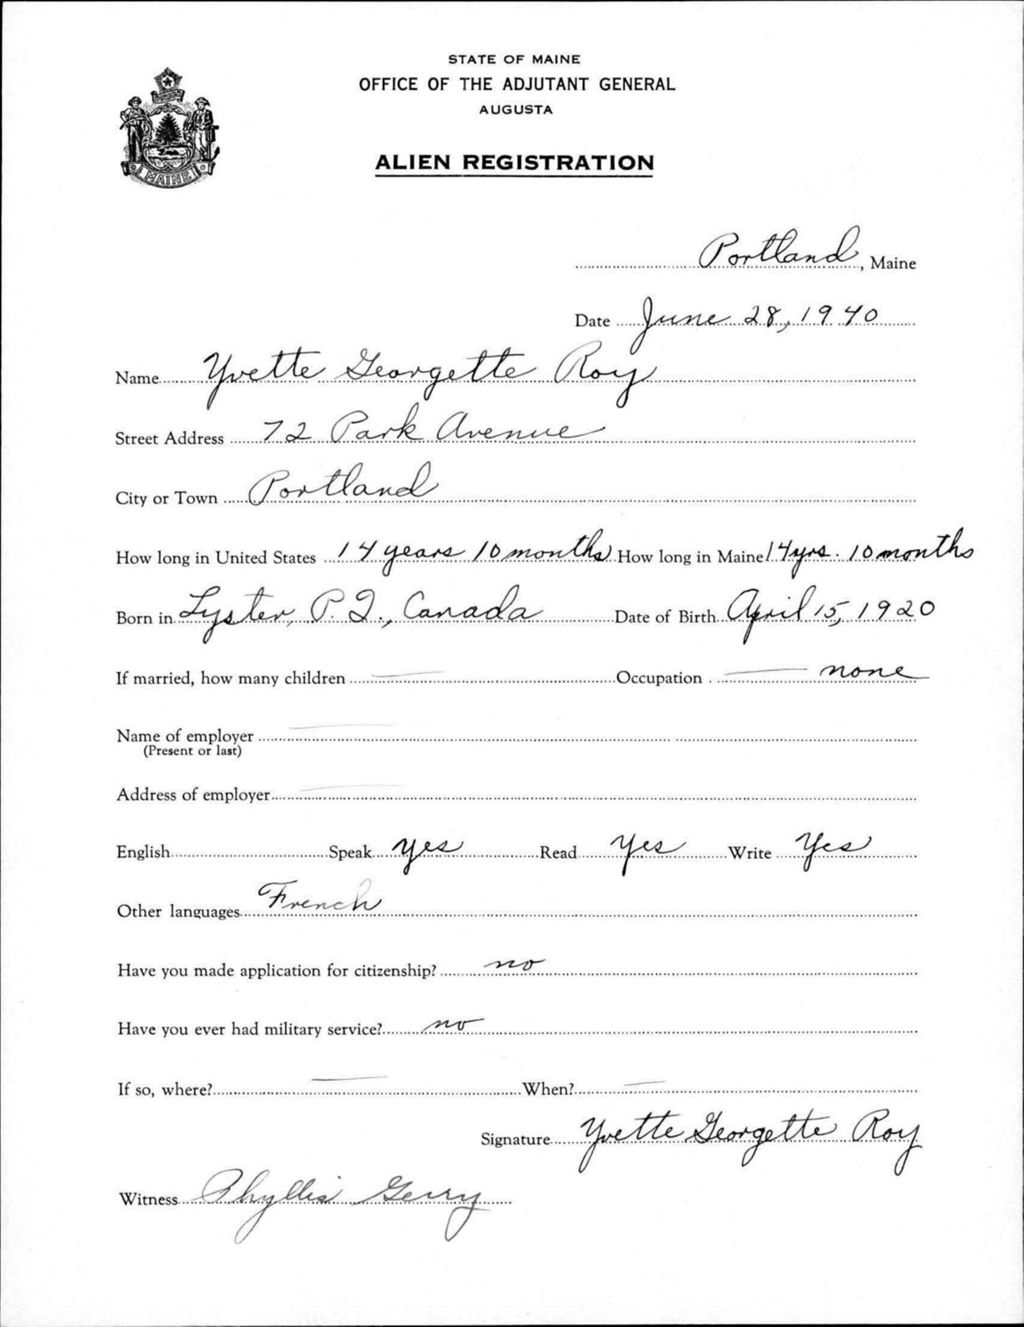 STATE OF MAINE
OFFICE OF THE ADJUTANT GENERAL
AUGUSTA
ALIEN REGISTRATION
MAINE
Portland, Maine
Date June 28, 1940
Name Yvette Georgette Roy
Street Address 72 Park Avenue
City or Town Portland
How long in United States 14 years 10 months How long in Maine 14 yrs. 10 months
Born in Lyster, P.Q., Canada Date of Birth April 15, 1920
If married, how many children — Occupation — none
Name of employer —
(Present or last)
Address of employer —
English Speak yes Read Yes Write Yes
Other languages French
Have you made application for citizenship? no
Have you ever had military service? no
If so, where? — When? —
Signature Yvette Georgette Roy
Witness Phyllis Gerry